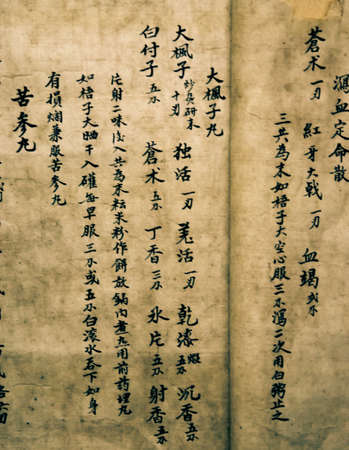 瀉血定命散
蒼术 一刃 紅牙大戟 一刃 血竭 弍分
三共為末如梧子大空心服三分瀉二次用白粥止之
大楓子丸
大楓子 炒長研末 十刃 独活 一刃 羌活 一刃 乾漆 五分 煅 沉香 五分
白付子 五分 蒼术 五分 丁香 三分 氷片 三刃 射香 五分
片射二味後入共為末粘米粉作餅放鍋内煮丸用前药埋丸
如梧子大晒干入磁每早服三分或五分白滚水吞下如身
有損爛兼服苦参丸
苦参丸